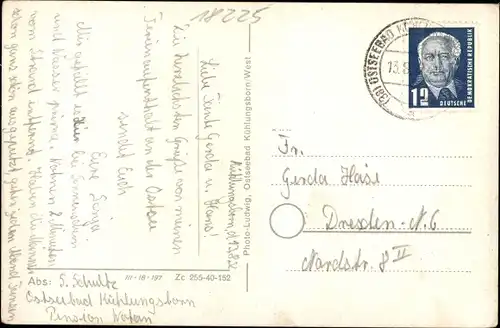 18225
Kühlungsborn, d. 13.8.52
Liebe Tante Gerda u. Hans!
Die herzlichsten Grüße von meinem
Ferienaufenthalt an der Ostsee
sendet Euch
Eure Sonja
Mir gefällt es hier. Bei Sonnenschein
und Wasser prima. Wohnen 2 Minuten
vom Strand entfernt. Haben die
schon ganz schön ausgenutzt gehen jeden Abend tanzen
Abs: S. Schultz
Ostseebad Kühlungsborn
Pension
III-18-197 Zc 255-40-152
Photo-Ludwig, Ostseebad Kühlungsborn-West
OSTSEEBAD
12
DEUTSCHE
DEMOKRATISCHE REPUBLIK
Fr.
Gerda Häse
Dresden-N. 6
Nordstr. 8 II